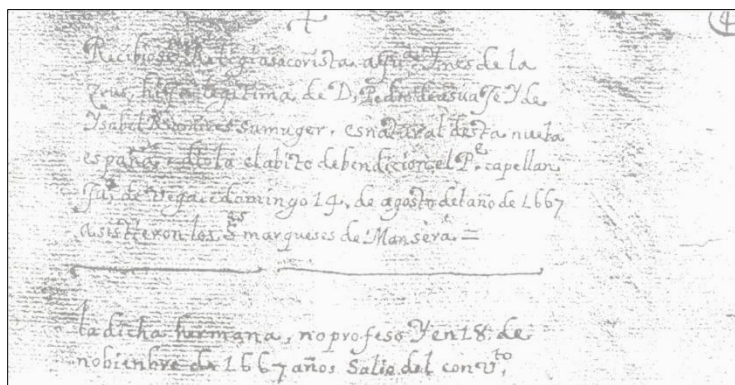 4
Recibiose Religiosa corista a Juª Ynes de la
Crus, hija legitima de D, Pedro de asuaje Y de
Ysabel Ramires su muger. es natural desta nueba
españa. diola el abito de bendicion, el Pe. capellan
Juº de Vega. domingo 14, de agosto del año de 1667
asistieron los Ss marqueses de Mansera =
la dicha hermana, no profeso Y en 18. de
nobienbre de 1667 años, Salio del convto.